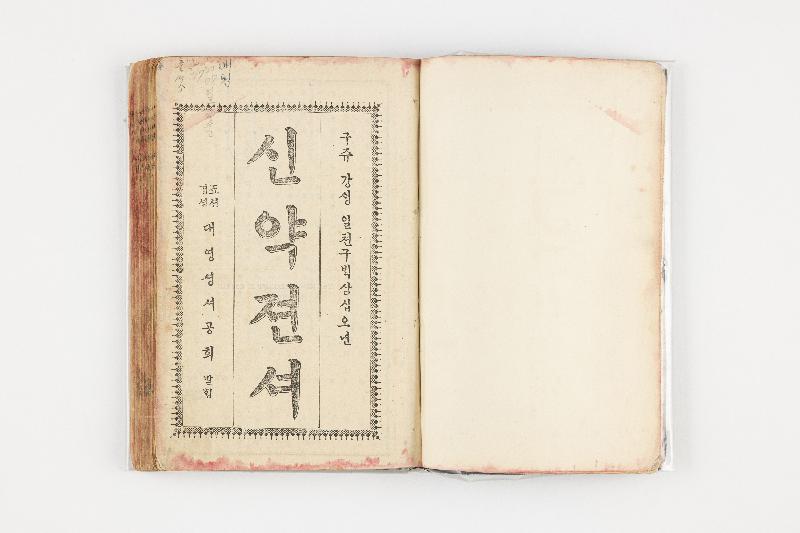 구쥬 강싱 일천구빅삼십오년
신약젼셔
경셩 죠션
대영셩셔공회 발힝